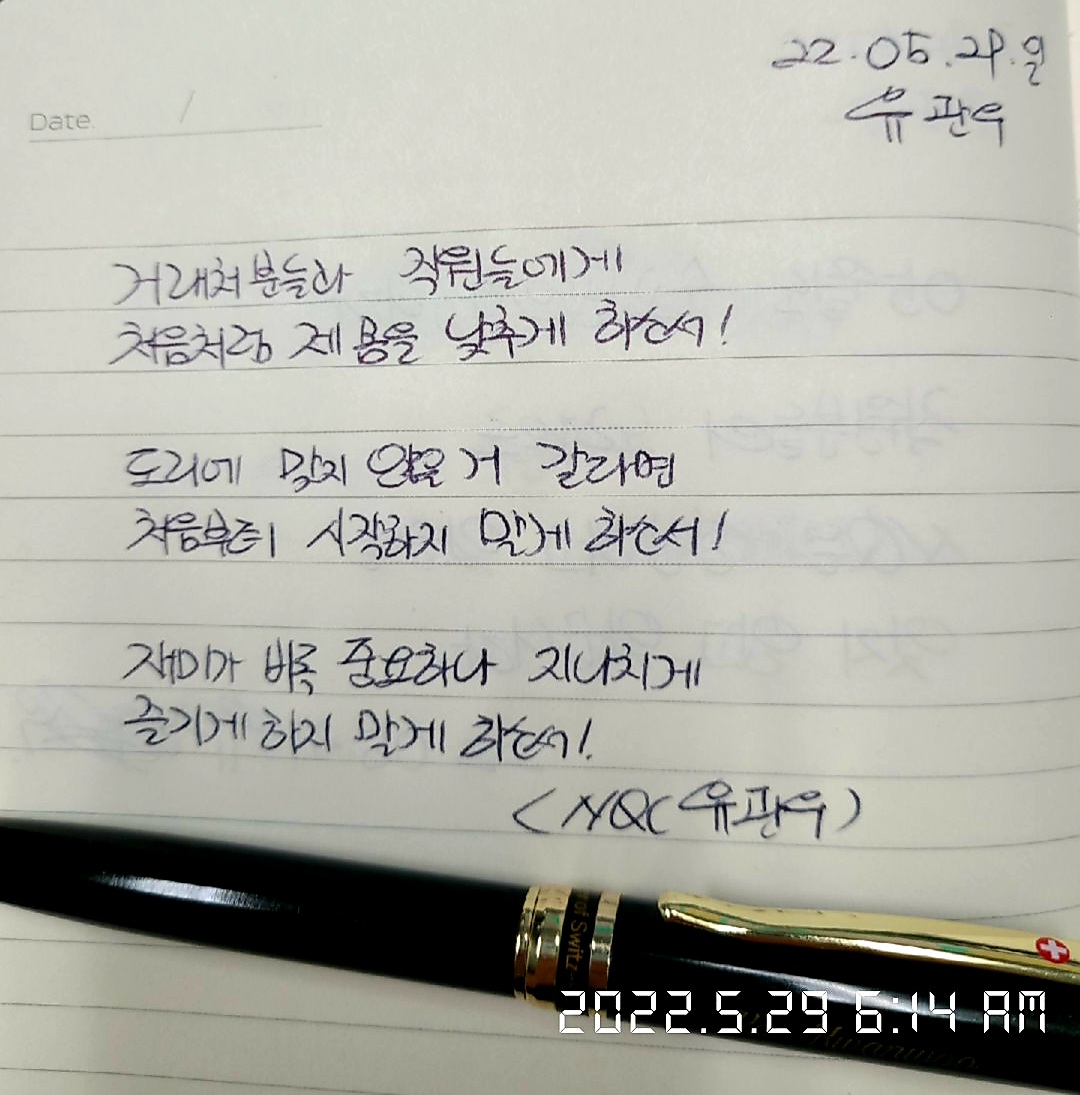 22.05.29.일
유관우
Date. /
거래처분들과 직원들에게
처음처럼 제 몸을 낮추게 하소서!
도리에 맞지 않을 거 같라면
처음부터 시작하지 말게 하소서!
재미가 비록 중요하나 지나치게
즐기게 하지 말게 하소서!
<NQC(유관우)
of Switz-
2022.5.29 6:14 AM